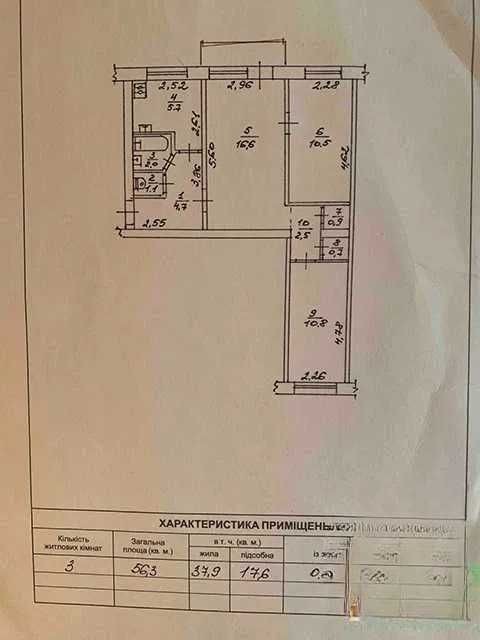 2,52
2,96
2,28
4
5.7
2,61
5
16,6
6
10,5
4,62
5,60
3
2.0
3,86
2
1.1
1
4,7
2,55
10
2,5
7
0,9
8
0,7
9
10,8
4,78
2,26
ХАРАКТЕРИСТИКА ПРИМІЩЕНЬ
Кількість житлових кімнат
Загальна площа (кв. м.)
в т. ч. (кв. м.)
жила
підсобна
із
3
56,3
37,9
17,6